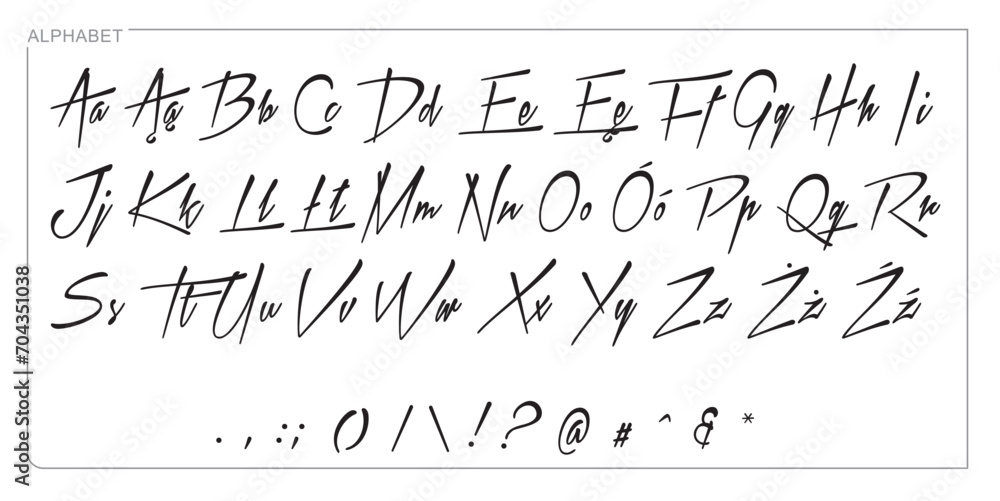 ALPHABET
Aa Ąą Bb Cc Dd Ee Ęę Ff Gg Hh Ii
Jj Kk Ll Łł Mm Nn Oo Óó Pp Qq Rr
Ss Tt Uu Vv Ww Xx Yy Zz Żż Źź
. , : ; () / \ ! ? @ # ^ & *
Adobe Stock | #704351038